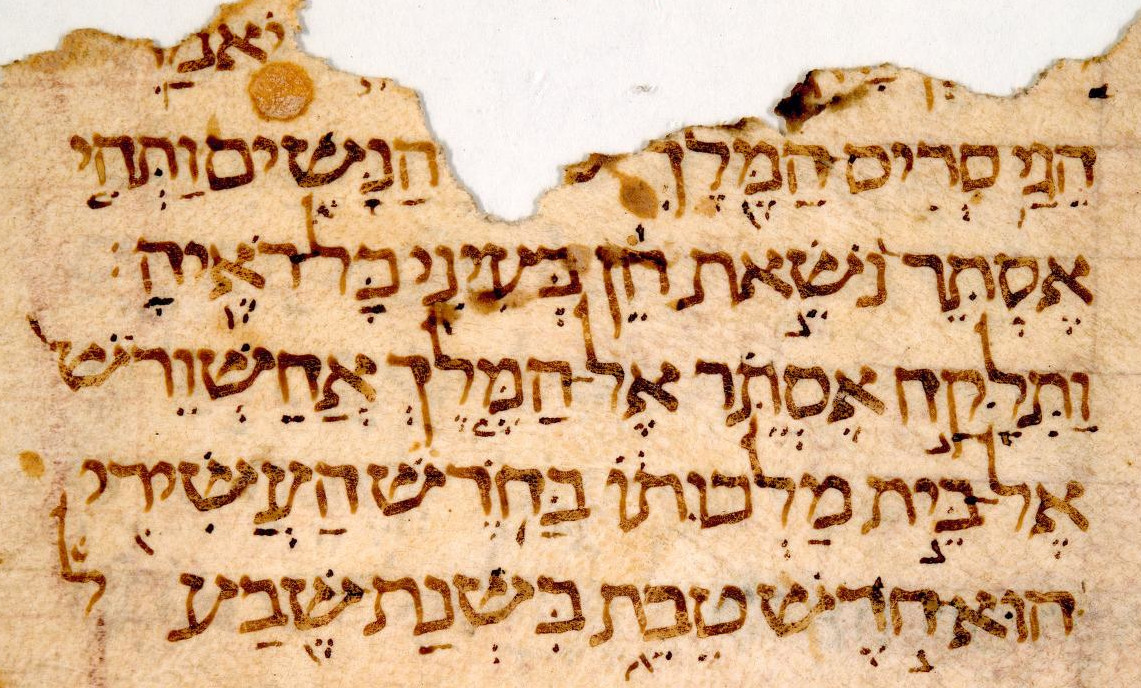 יֹאמַר
הֵגַי סְרִיס הַמֶּלֶךְ הַנָּשִׁים וַתְּהִי
אֶסְתֵּר נֹשֵׂאת חֵן בְּעֵינֵי כָּל־רֹאֶיהָ׃
וַתִּלָּקַח אֶסְתֵּר אֶל־הַמֶּלֶךְ אֲחַשְׁורֹשׁ
אֶל־בֵּית מַלְכוּתוֹ בַּחֹדֶשׁ הָעֲשִׂירִי
הוּא־חֹדֶשׁ טֵבֵת בִּשְׁנַת שֶׁבַע ל